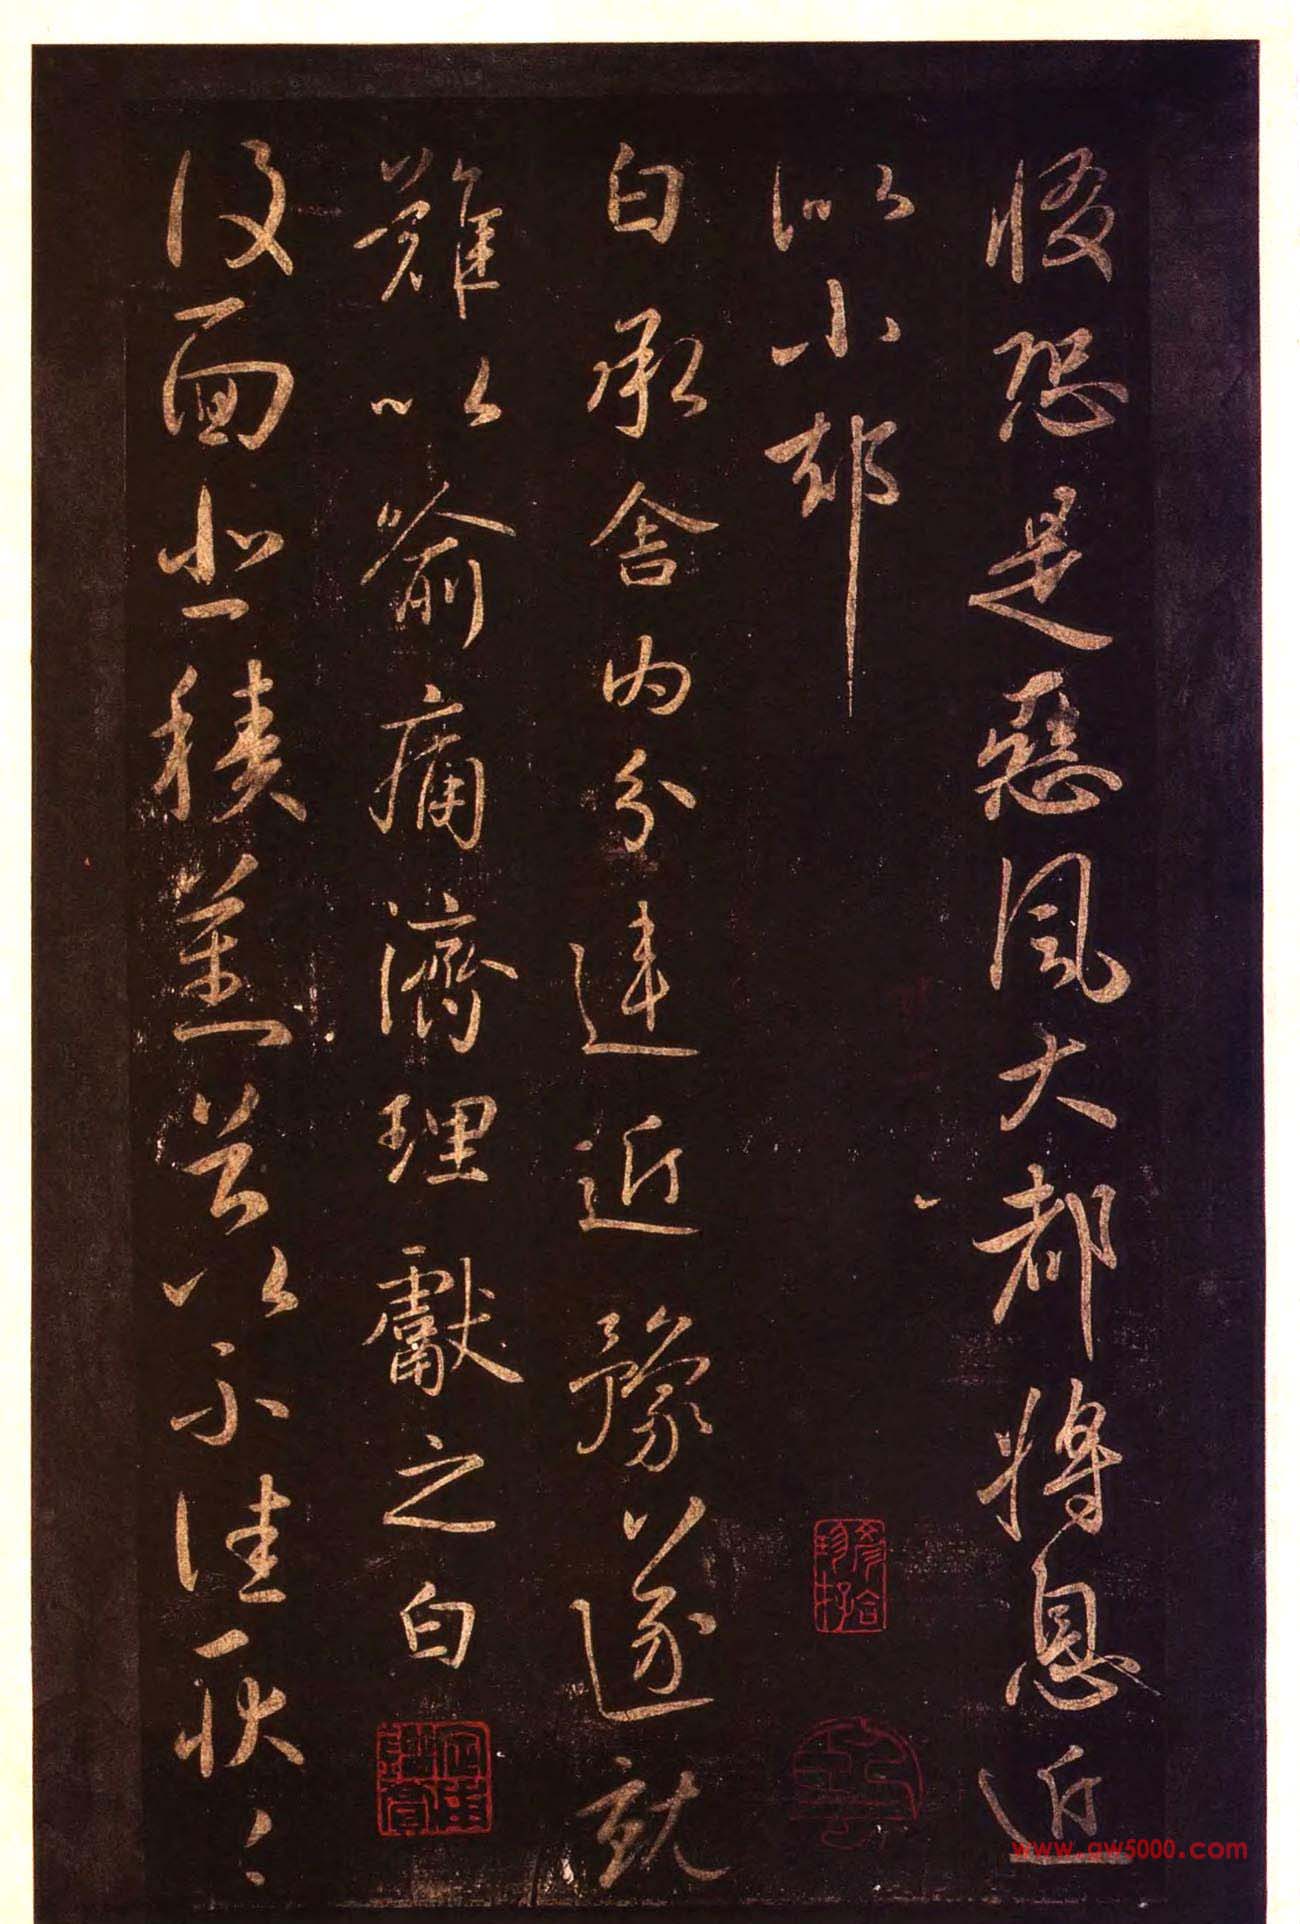 恐是惡風大都將息近
似小却
白承舍內分違近豫遂就
難以喻痛濟理獻之白
復面悲積苦以不佳耿〻
www.gw5000.com